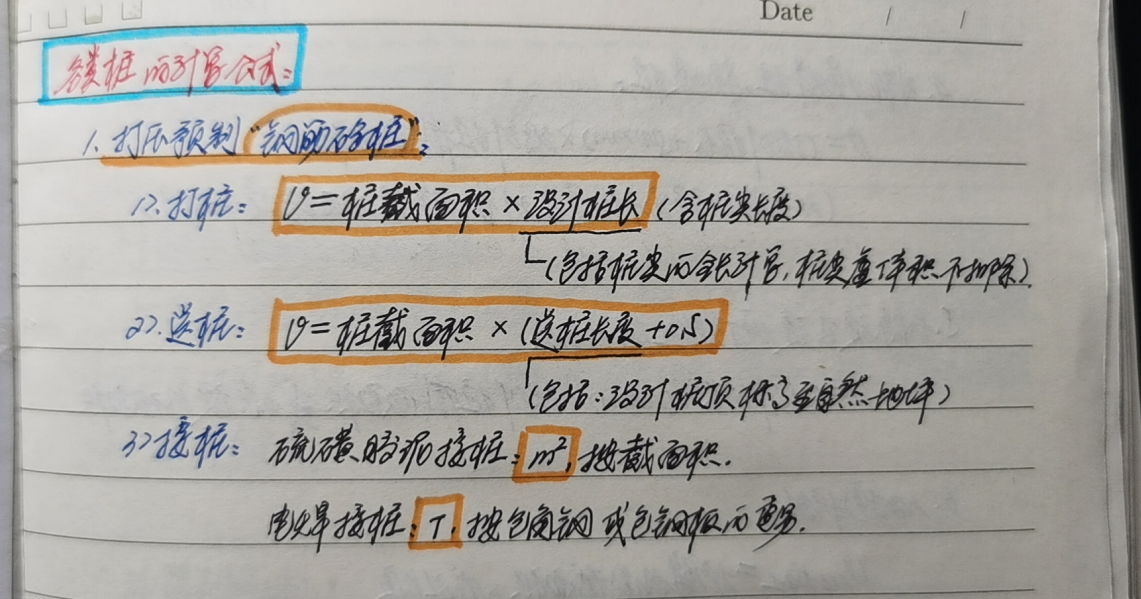 Date / /
各类桩的计算公式：
1、打压预制"钢筋砼桩"：
1>.打桩： V=桩截面积×设计桩长（含桩尖长度）
（包括桩尖的全长计算，桩尖虚体积不扣除）.
2>.送桩： V=桩截面积×（送桩长度+0.5）
（包括：设计桩顶标高至自然地坪）
3>接桩： 硫磺胶泥接桩：m²，按截面积.
电焊接桩：T，按包角钢或包钢板的重量.